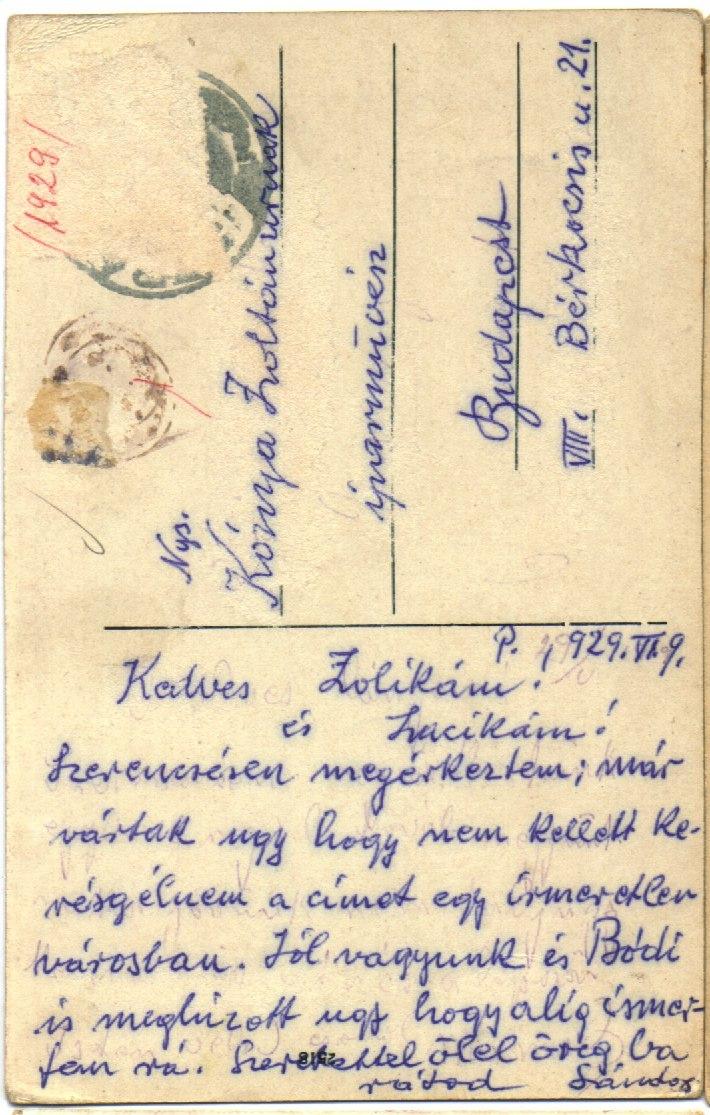 /1929/
Nys.
Kónya Zoltán urnak
iparmüvész
Budapest
VIII. Bérkocsis u. 21.
P. 1929. VI. 9.
Kedves Zolikám!
és Lacikám!
Szerencsésen megérkeztem; már
vártak ugy hogy nem kellett ke-
resgélnem a címet egy ismeretlen
városban. Jól vagyunk és Bódi
is meghizott ugy hogy alig ismer-
tem rá. Szeretettel ölel öreg ba
rátod Sándor